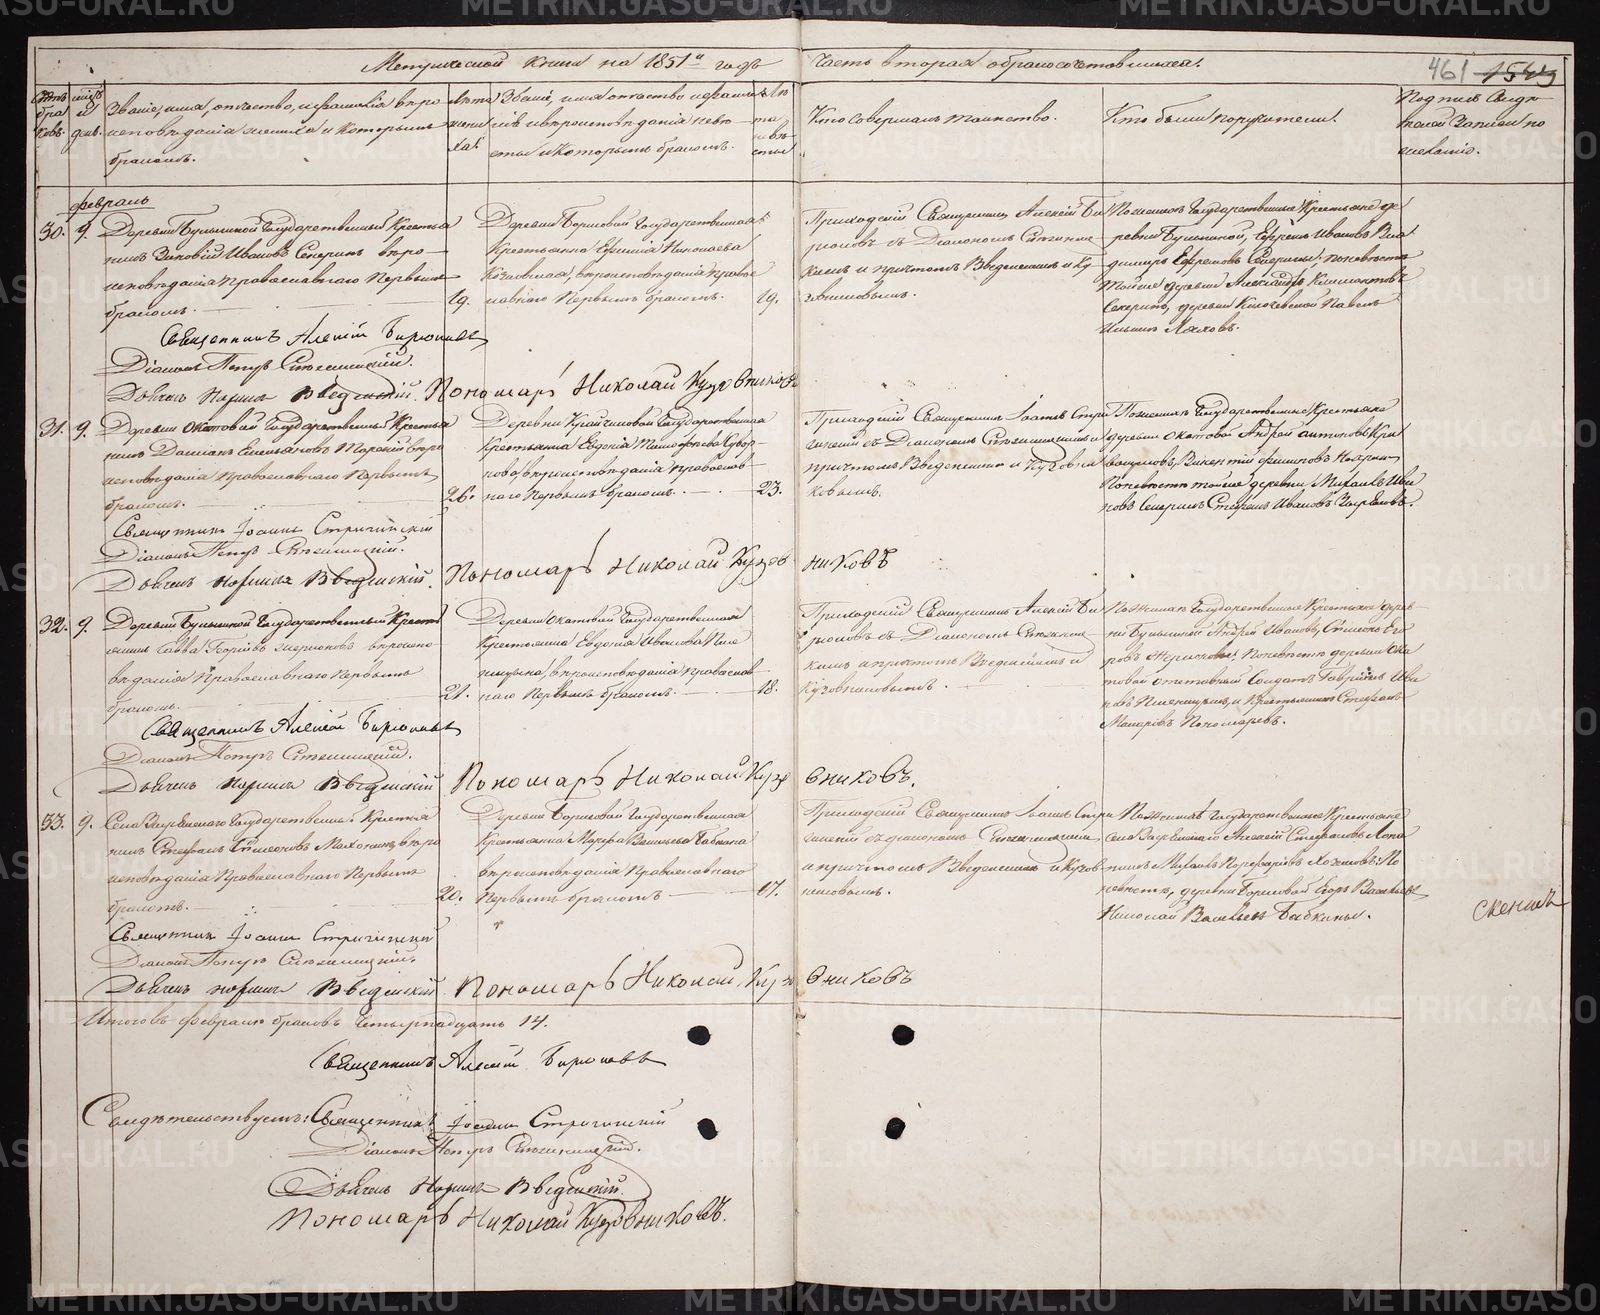 Метрической книги на 1851й годъ
Часть вторая о бракосочетавшихся.
461
Счетъ браковъ.
мѣсяцъ и день.
Званіе, имя, отчество, и фамилія вѣро
исповѣданіе жениха и которымъ
бракомъ.
Лѣта
жени
ха.
Званіе, имя отчество и фами
лія и вѣроисповѣданіе невѣ
сты и которымъ бракомъ.
Лѣ
та
невѣ
сты
Кто совершалъ таинство.
Кто были поручители.
Подпись свидѣ
телей записи по
желанію.
февраль
30. 9.
Деревни Бунькиной Государственный Крестья
нинъ Иванов Секеринъ вѣро
исповѣданія православнаго Первымъ
бракомъ.
19.
Деревни Борисовой Государственная
Крестьянка Николаева
вѣроисповѣданія правос
лавнаго Первымъ бракомъ.
19.
Приходскій Священникъ Алексѣй Би
рюковъ съ Діакономъ
и причтомъ Введенскимъ и Ку
зовниковымъ.
По женихѣ Государственные Крестьяне де
ревни Бунькиной, Ефремъ Ивановъ Вла
димиръ Ефремовъ Секерины, по невѣстѣ
тойже деревни Александръ
Секеринъ, деревни Ключевской Павелъ
Ильинъ
Священникъ Алексій Бирюковъ
Діаконъ Петръ
Дьячекъ Введенскій. Пономарь Николай Кузовниковъ
31. 9.
Деревни Окатовой Государственный Крестья
нинъ Емельяновъ вѣро
исповѣданія православнаго Первымъ
бракомъ.
26.
Деревни Государственная
Крестьянка Евдокія Тимофеева Сувор
кова вѣроисповѣданія православ
наго Первымъ бракомъ.
23.
Приходскій Священникъ Іоаннъ Стри
жинскій съ Діакономъ и
причтомъ Введенскимъ и Кузовни
ковымъ.
По женихѣ Государственные Крестьяне
деревни Окатовой Андрей Антиповъ
Викентій Филиповъ
По невѣстѣ тойже деревни Михаилъ Ива
новъ Секеринъ Стефанъ Ивановъ
Священникъ Іоаннъ Стрижинскій
Діаконъ Петръ
Дьячекъ Введенскій. Пономарь Николай Кузовниковъ
32. 9.
Деревни Бунькиной Государственный Крестья
нинъ Савва вѣроиспо
вѣданія Православнаго Первымъ
бракомъ.
21.
Деревни Окатовой Государственная
Крестьянка Евдокія Иванова Пше
ницына, вѣроисповѣданія православ
наго Первымъ бракомъ.
18.
Приходскій Священникъ Алексѣй Би
рюковъ съ Діакономъ
и причтомъ Введенскимъ и
Кузовниковымъ.
По женихѣ Государственные Крестьяне дерев
ни Бунькиной Андрей Ивановъ, Симеонъ Его
ровъ По невѣстѣ деревни Ока
товой отставный Солдатъ Гавриилъ Ива
новъ Пшеницынъ, и Крестьянинъ Стефанъ
Макаровъ Пономаревъ.
Священникъ Алексій Бирюковъ
Діаконъ Петръ
Дьячекъ Введенскій Пономарь Николай Кузовниковъ.
33. 9.
Села Государственный Крестья
нинъ Стефанъ Симеоновъ вѣро
исповѣданія Православнаго Первымъ
бракомъ.
20.
Деревни Борисовой Государственная
Крестьянка Марфа Васильева Бабкина
вѣроисповѣданія Православнаго
Первымъ бракомъ
17.
Приходскій Священникъ Іоаннъ Стри
жинскій съ діакономъ
и причтомъ Введенскимъ и Кузов
никовымъ.
По женихѣ Государственные Крестьяне
села Алексій Стефановъ
Михаилъ Порфирьевъ По
невѣстѣ, деревни Борисовой Егоръ Васильевъ
Николай Васильевъ Бабкины.
Священникъ Іоаннъ Стрижинскій
Діаконъ Петръ
Дьячекъ Введенскій Пономарь Николай Кузовниковъ
Итого въ февралѣ браковъ четырнадцать 14.
Священникъ Алексій Бирюковъ
Свидѣтельствуемъ: Священникъ Іоаннъ Стрижинскій
Діаконъ Петръ
Дьячекъ Введенскій.
Пономарь Николай Кузовниковъ.
METRIKI.GASO-URAL.RU